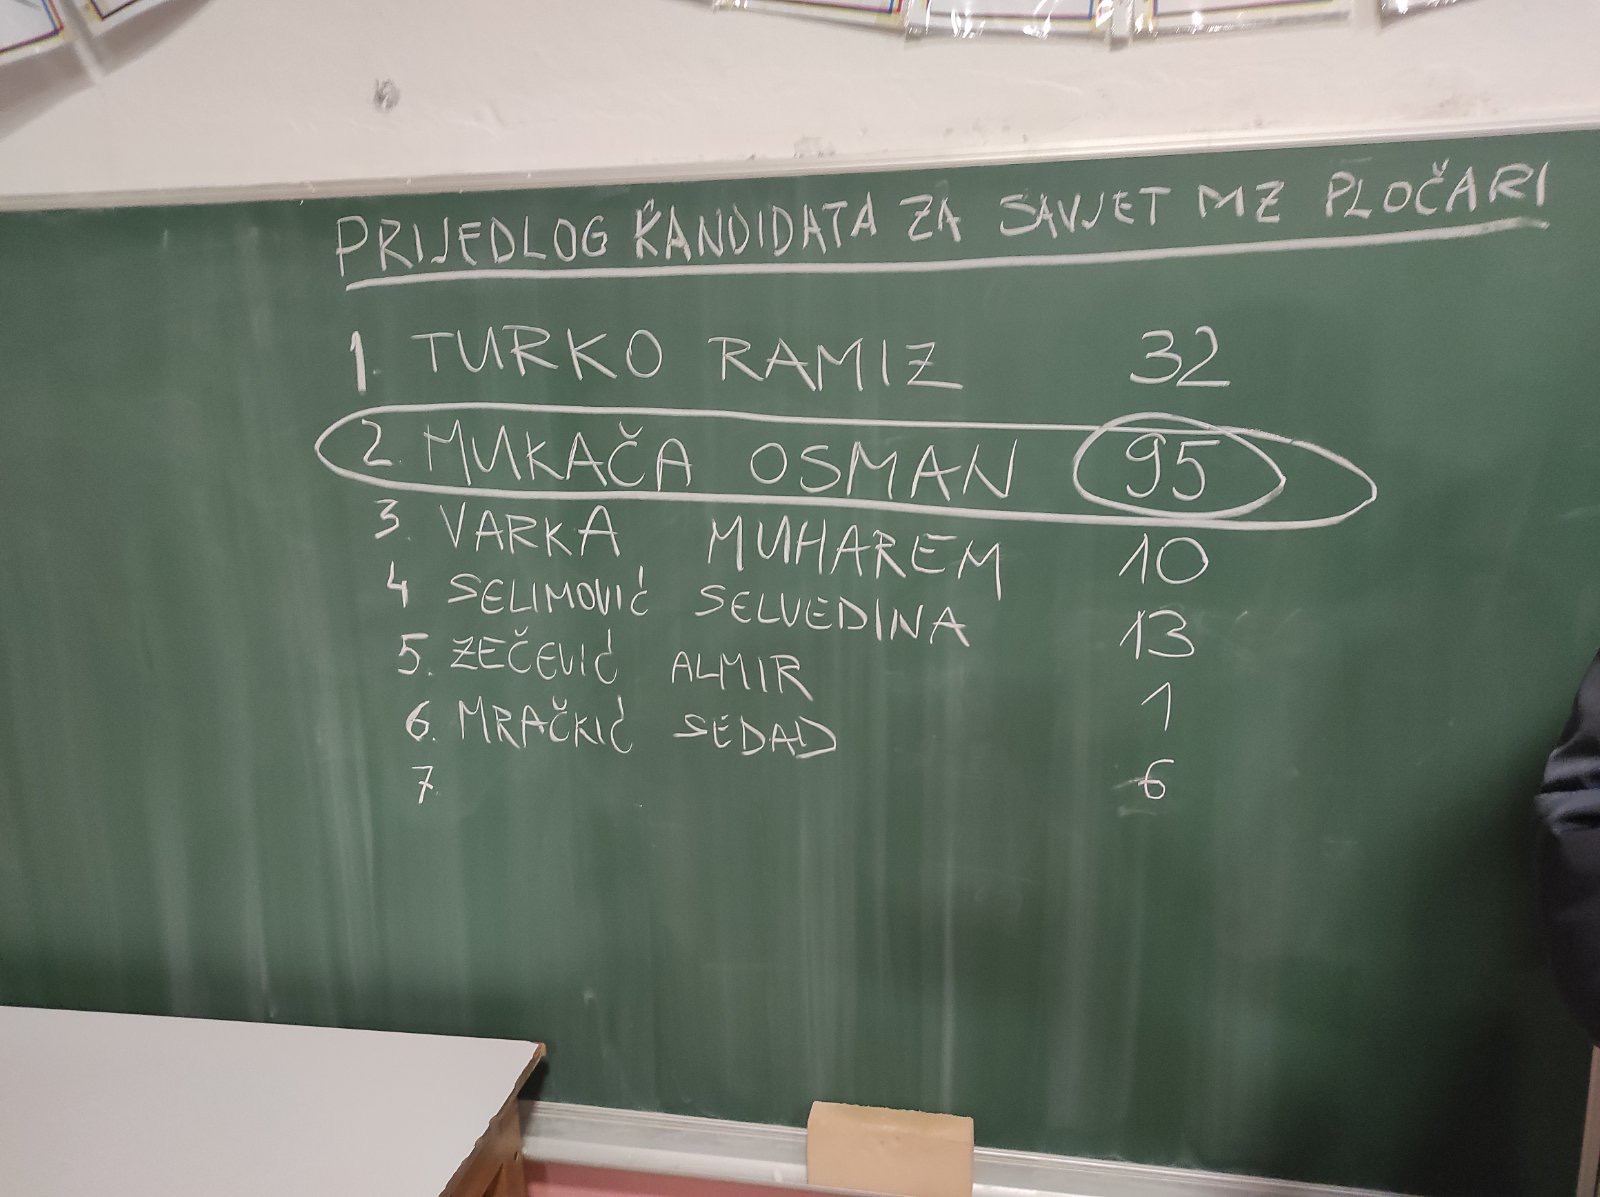 PRIJEDLOG KANDIDATA ZA SAVJET MZ PLOČARI
1. TURKO RAMIZ 32
2. MUKAČA OSMAN 95
3. VARKA MUHAREM 10
4 SELIMOVIĆ SELVEDINA 13
5. ZEČEVIĆ ALMIR 1
6. MRAČKIĆ SEDAD 6
7.